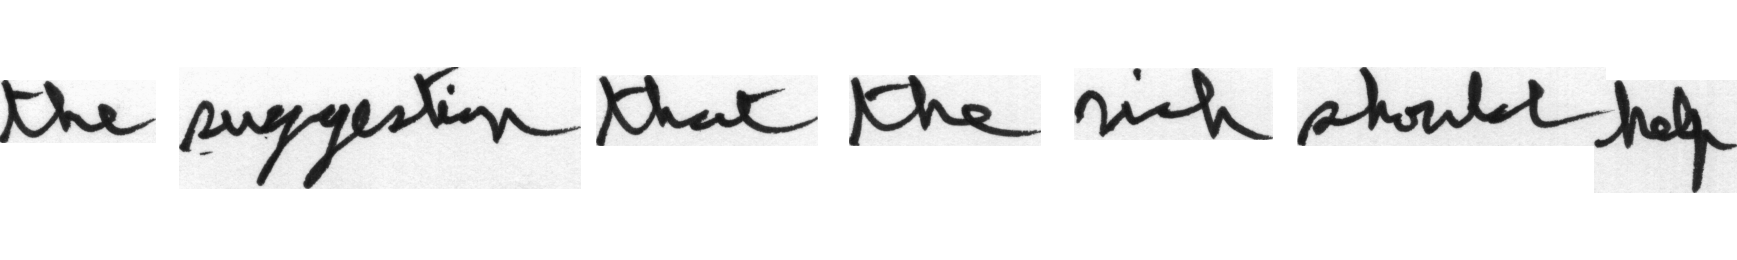 the suggestion that the rich should help